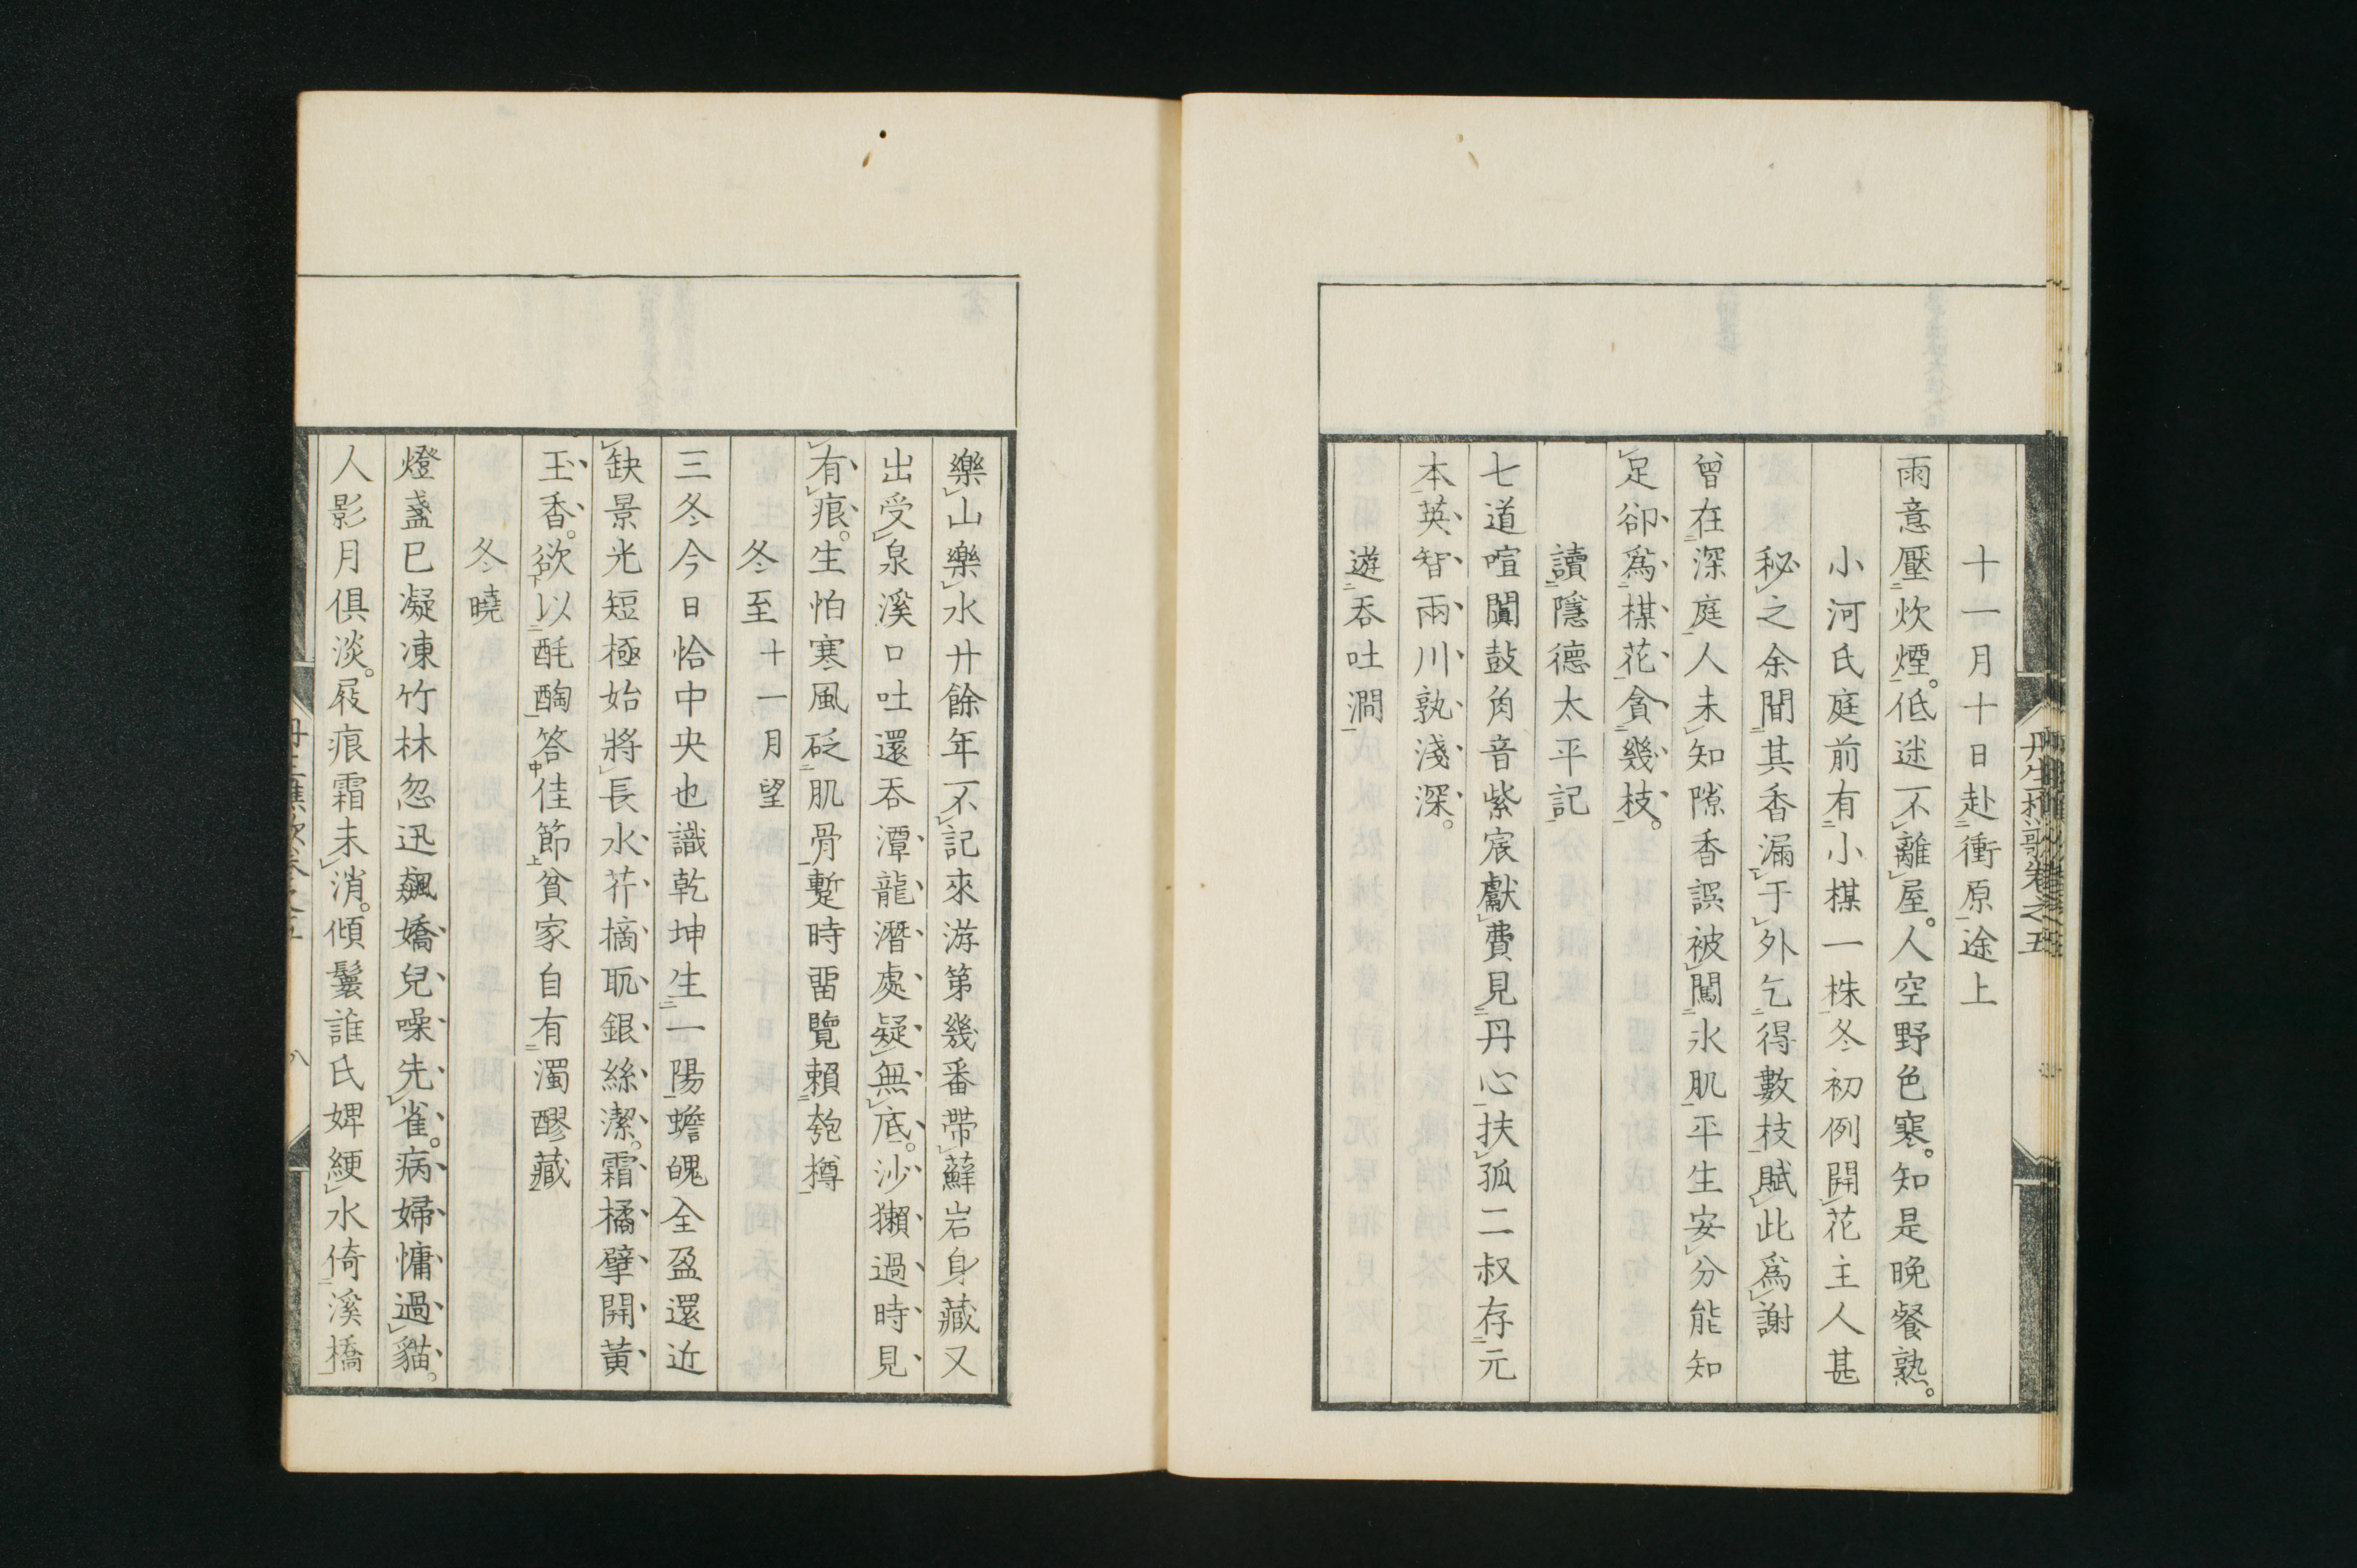 十一月十日赴衝原途上
雨意壓炊煙。低迷不離屋。人空野色寒。知是晩餐熟。
小河氏庭前有小楳一株冬初例開花主人甚
秘之余聞其香漏于外乞得數枝賦此爲謝
曾在深庭人未知隙香誤被闖氷肌平生安分能知
足卻爲楳花貪幾枝。
讀隱德太平記
七道喧闐鼓角音紫宸獻費見丹心扶孤二叔存元
本英智兩川孰淺深。
遊吞吐澗
樂山樂水廿餘年不記來游第幾番帶蘚岩身藏又
出受泉溪口吐還吞潭龍潛處疑無底。沙獺過時見
有痕。生怕寒風砭肌骨蹔時畱覽賴匏樽
冬至十一月望
三冬今日恰中央也識乾坤生一陽蟾魄全盈還近
缺景光短極始將長水芥摘耴銀絲潔。霜橘擘開黃
玉香。欲以酕醄答佳節貧家自有濁醪藏
冬曉
燈盞已凝凍竹林忽迅飆嬌兒噪先雀。病婦慵過貓。
人影月俱淡。屐痕霜未消。傾鬟誰氏婢綆水倚溪橋
丹生樵歌卷之五
八